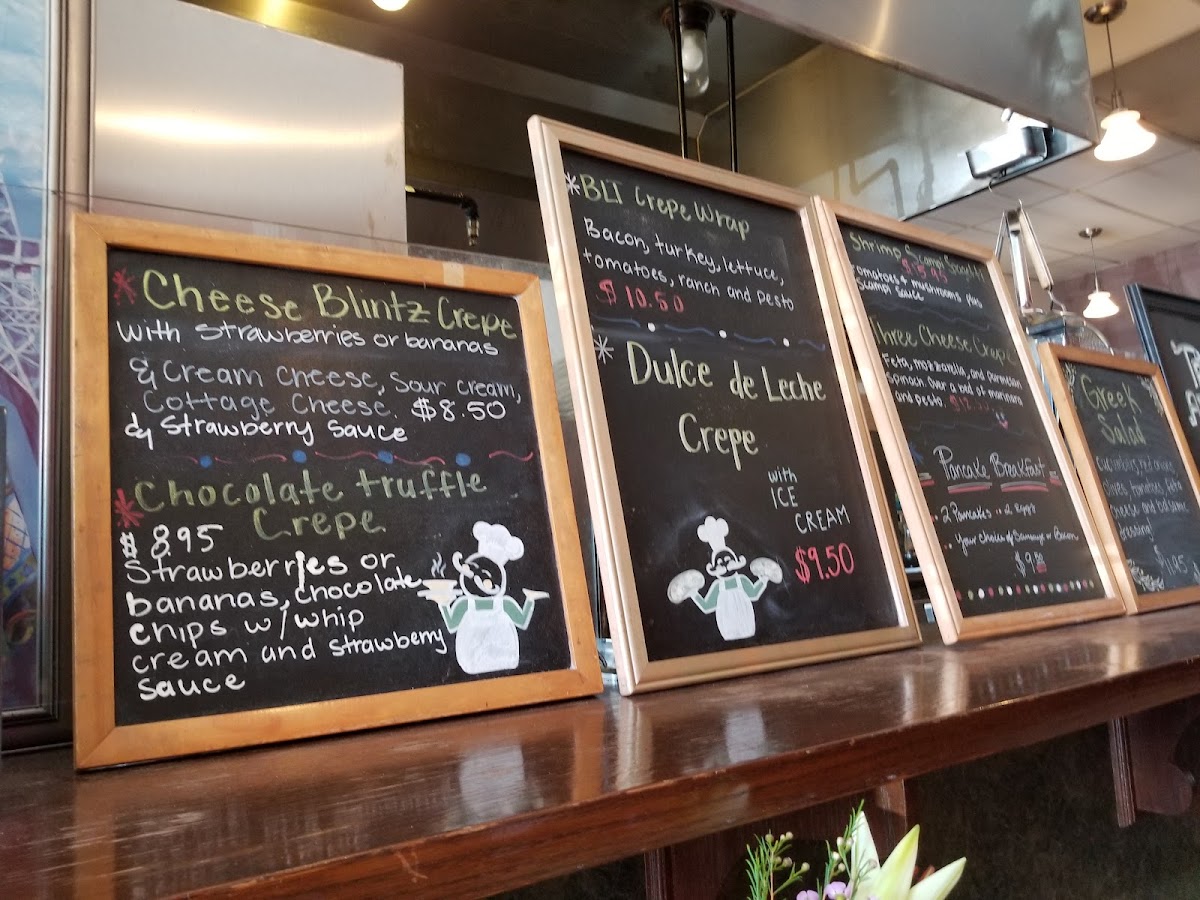 Cheese Blintz Crepe
with strawberries or bananas
& Cream cheese, sour cream,
Cottage Cheese. $8.50
& strawberry sauce
Chocolate truffle
Crepe
$8.95
Strawberries or
bananas, chocolate
chips w/whip
cream and strawberry
sauce
*BLT Crepe Wrap
Bacon, turkey, lettuce,
tomatoes, ranch and pesto
$10.50
Dulce de Leche
Crepe
with
ICE
CREAM
$9.50
Shrimp Scampi
tomatoes & mushrooms plus
Scampi sauce
Three Cheese Crepe
Feta, mozzarella, and parmesan
Spinach over a bed of marinara
and pesto.
Pancake Breakfast
2 Pancakes 2 eggs
Your choice of Sausage or Bacon
Greek
Salad
Cucumbers, red onions
olives, tomatoes, feta
cheese and balsamic
dressing!